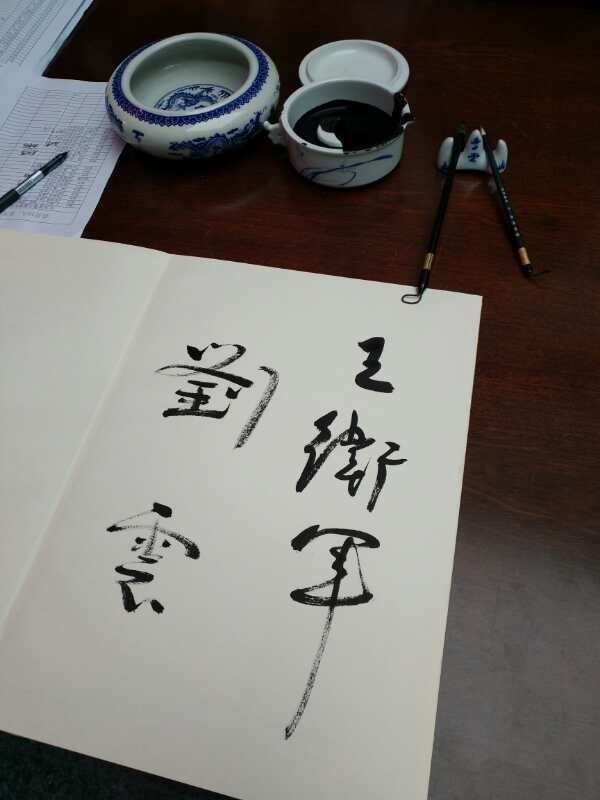 王衛軍
劉雲